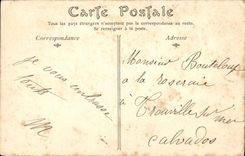 Carte Postale
Tous les pays étrangers n'acceptent pas la correspondance au recto.
Se renseigner à la poste.
Correspondance
Adresse
je vous embrasse
toute
Monsieur Bouteloup
à la roseraie
à Trouville sur mer
Calvados